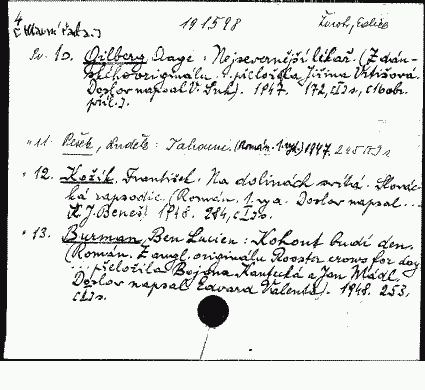 4
191598
Živote, Edice
[Hlavní řada.]
Sv. 10. Gilberg Aage: Nejsevernější lékař. (Z dán-
ského originálu přeložila Jiřina Vrtišová.
Doslov napsal V. Suk). 1947. 172, [I] s., c16obr.
příl.).
" 11. Pešek, Luděk: Tahouni. (Román. 1. vyd.) 1947. 245 [I] s
" 12. Kožík, František. Na dolinách svítá. Slovác-
ká rapsodie. (Román. 1. vyd. Doslov napsal...
K. J. Beneš) 1948. 284, [I] s.
" 13. Burman, Ben Lucien: Kohout budí den.
(Román. Z angl. originálu Rooster crows for day
... přeložila Bojana Kantecká a Jan Mládl.
Doslov napsal Edvard Valenta). 1948. 253,
[I] s.